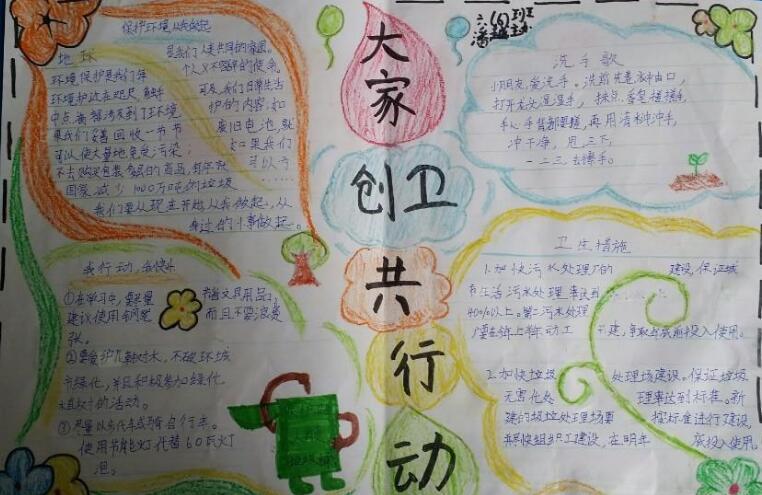 大家
创卫
共
行
动
六(四)班
保护环境从我做起
地球
是我们人类共同的家园。
环境保护是我们每
个义不容辞的使命。
环境护这在咫尺
可及,我们日常生活
中点滴都涉及到了环境
护的内容,如
果我们能回收一节节
废旧电池,就
可以使大量地免受污染;
如果我们
不去购买包装繁琐的商品,每年就
可以为
国家减少1000万吨的垃圾……
我们要从现在开始从我做起,从
身边的小事做起。
洗手歌
小朋友,爱洗手。洗前先卷袖口,
打开龙头湿湿手,抹点香皂搓搓手,
手心手背都要搓,再用清水冲冲手,
冲干净,甩三下,
一二三去擦手。
我行动,我快乐
①在学习中,要尽量
书籍文具用品,
建议使用
而且不要浪费
张。
②要爱护花草树木,不破环城
市绿化,并且积极参加绿化
植树的活动。
③尽量以步代车或骑自行车。
使用节能灯代替60瓦灯
泡。
卫生措施
1.加快污水处理厂的
建设,保证城
市生活污水处理率达到
40%以上。第二污水处理
厂要在年上特动工
兴建,争取年底前投入使用。
2.加快垃圾
处理场建设。保证垃圾
无害化处
理率达到标准。新
建的垃圾处理场要
按标准进行建设,
并尽快组织工建设,在明年
底投入使用。